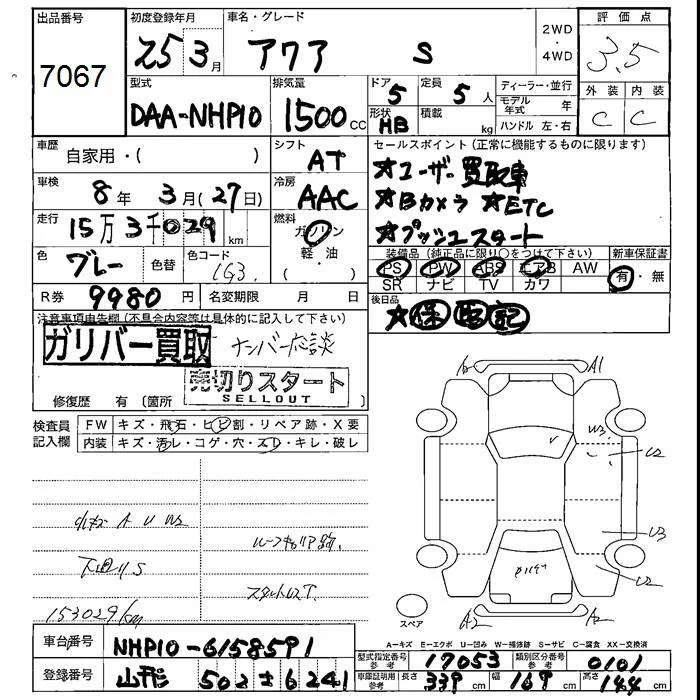 出品番号 初度登録年月 車名・グレード 2WD・4WD 評価点
7067 25 3月 アクア S 3.5
外装 内装
C C
型式 排気量 ドア 定員 ディーラー・並行
DAA-NHP10 1500cc 5 5人 モデル年式 年
形状 積載 ハンドル 左・右
HB kg
車歴 自家用・( ) シフト AT
セールスポイント(正常に機能するものに限ります)
☆ユーザー買取車
☆Bカメラ ☆ETC
☆プッシュスタート
車検 8年 3月(27日) 冷房 AAC
走行 15万3千029km 燃料 ガソリン・軽油・( )
色 グレー 色替 色コード 1G3
装備品(純正品に限り○をつけて下さい) 新車保証書
PS PW ABS エアB AW 有・無
SR ナビ TV カワ
R券 9980円 名変期限 月 日
後日品
☆保 取 記
注意事項申告欄(不具合内容等は具体的に記入して下さい)
ガリバー買取 ナンバー応談
売切りスタート
SELLOUT
修復歴 有(箇所
検査員記入欄 FW キズ・飛石・ヒビ割・リペア跡・X要
内装 キズ・汚レ・コゲ・穴・スレ・キレ・破レ
A1
W3
U2
V
U3
U2
A2
A2
スペア
小キズ A U W2
下廻りS
153029km
A-キズ E-エクボ U-凹み W-補修跡 S-サビ C-腐食 XX-交換済
車台番号 NHP10-6158591
型式指定番号 参考 17053 類別区分番号 参考 0101
登録番号 山形 502 す 6241
車庫証明用 参考 長さ 339cm 幅 169cm 高さ 144cm